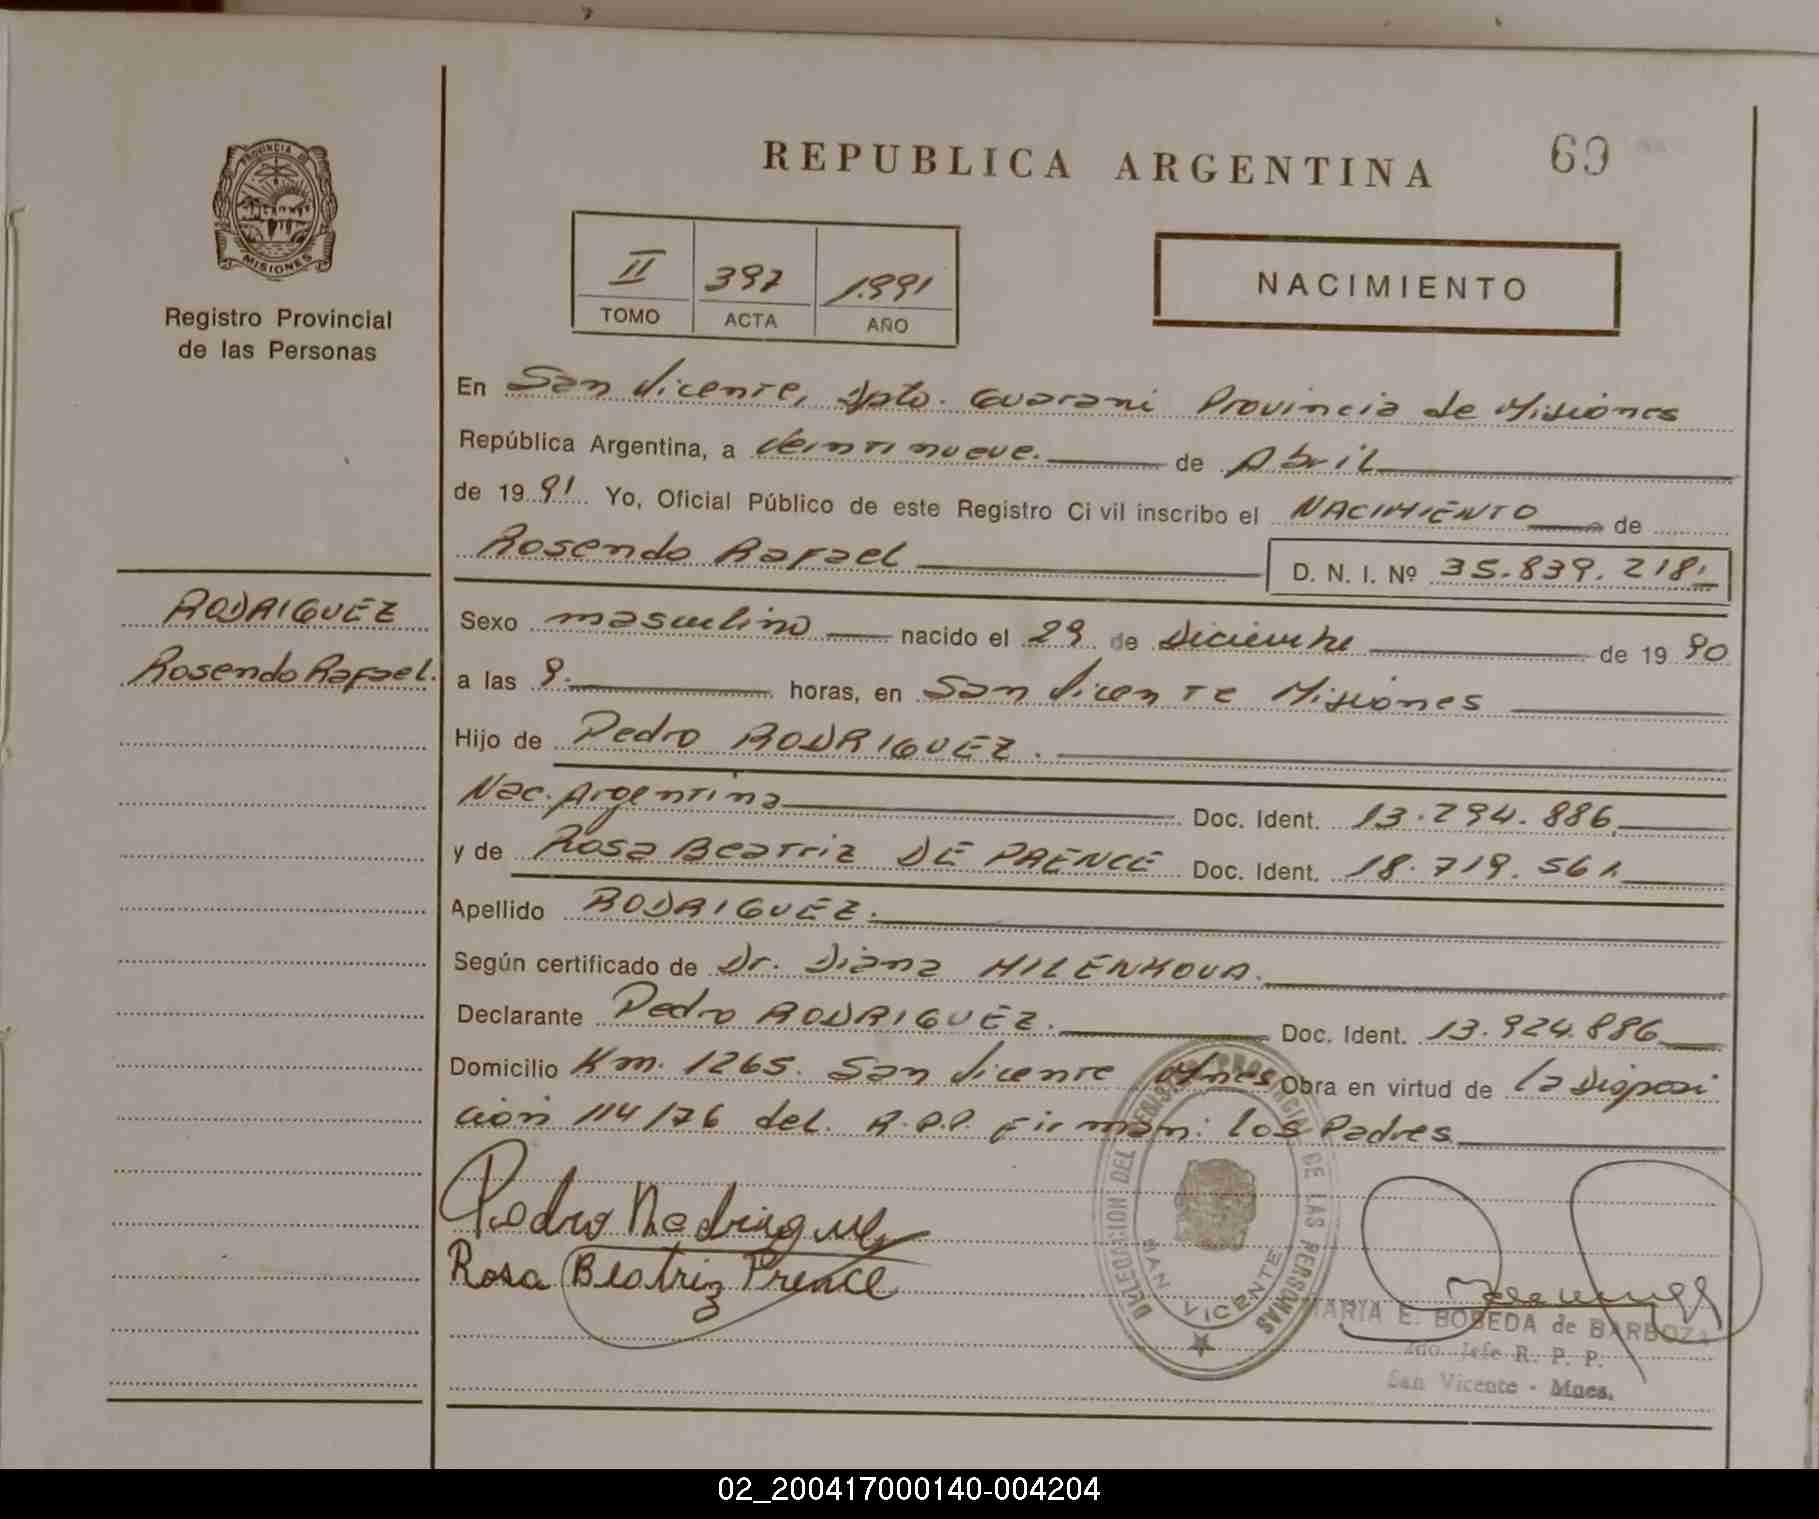 REPUBLICA ARGENTINA
69
PROVINCIA DE
MISIONES
Registro Provincial
de las Personas
II 397 1.991
TOMO ACTA AÑO
NACIMIENTO
En San Vicente, Dpto. Guarani Provincia de Misiones
República Argentina, a Veintinueve. de Abril
de 1991 Yo, Oficial Público de este Registro Civil inscribo el NACIMIENTO de
Rosendo Rafael D. N. I. Nº 35.839.218.
RODRIGUEZ
Rosendo Rafael.
Sexo masculino nacido el 29 de Diciembre de 1990
a las 9. horas, en San Vicente Misiones
Hijo de Pedro RODRIGUEZ.
Nac. Argentina Doc. Ident. 13.294.886
y de Rosa Beatriz DE PRENCE Doc. Ident. 18.719.561.
Apellido RODRIGUEZ.
Según certificado de Dr. Diana MILENKOVA.
Declarante Pedro RODRIGUEZ. Doc. Ident. 13.924.886
Domicilio Km. 1265. San Vicente Mnes Obra en virtud de la Disposi
ción 114/76 del. R.P.P. Firman: los Padres
Pedro Rodriguez
Rosa Beatriz Prence
DELEGACION DEL REGISTRO PROVINCIAL DE LAS PERSONAS
SAN VICENTE
MARIA E. BOBEDA de BARBOZA
2do. Jefe R. P. P.
San Vicente - Mnes.
02_200417000140-004204